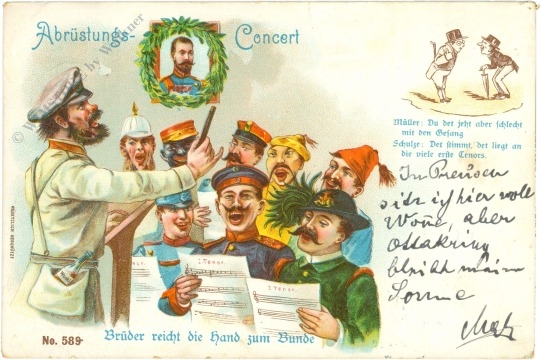 Abrüstungs-Concert
Müller: Du det jeht aber schlecht
mit den Gesang
Schulze: Det stimmt, det liegt an
die viele erste Tenors.
In Preussen
sitz ich hier voll
Wonne, aber
Ottakring
bleibt meine
Sonne
1. Tenor.
1. Tenor.
No. 589
Brüder reicht die Hand zum Bunde